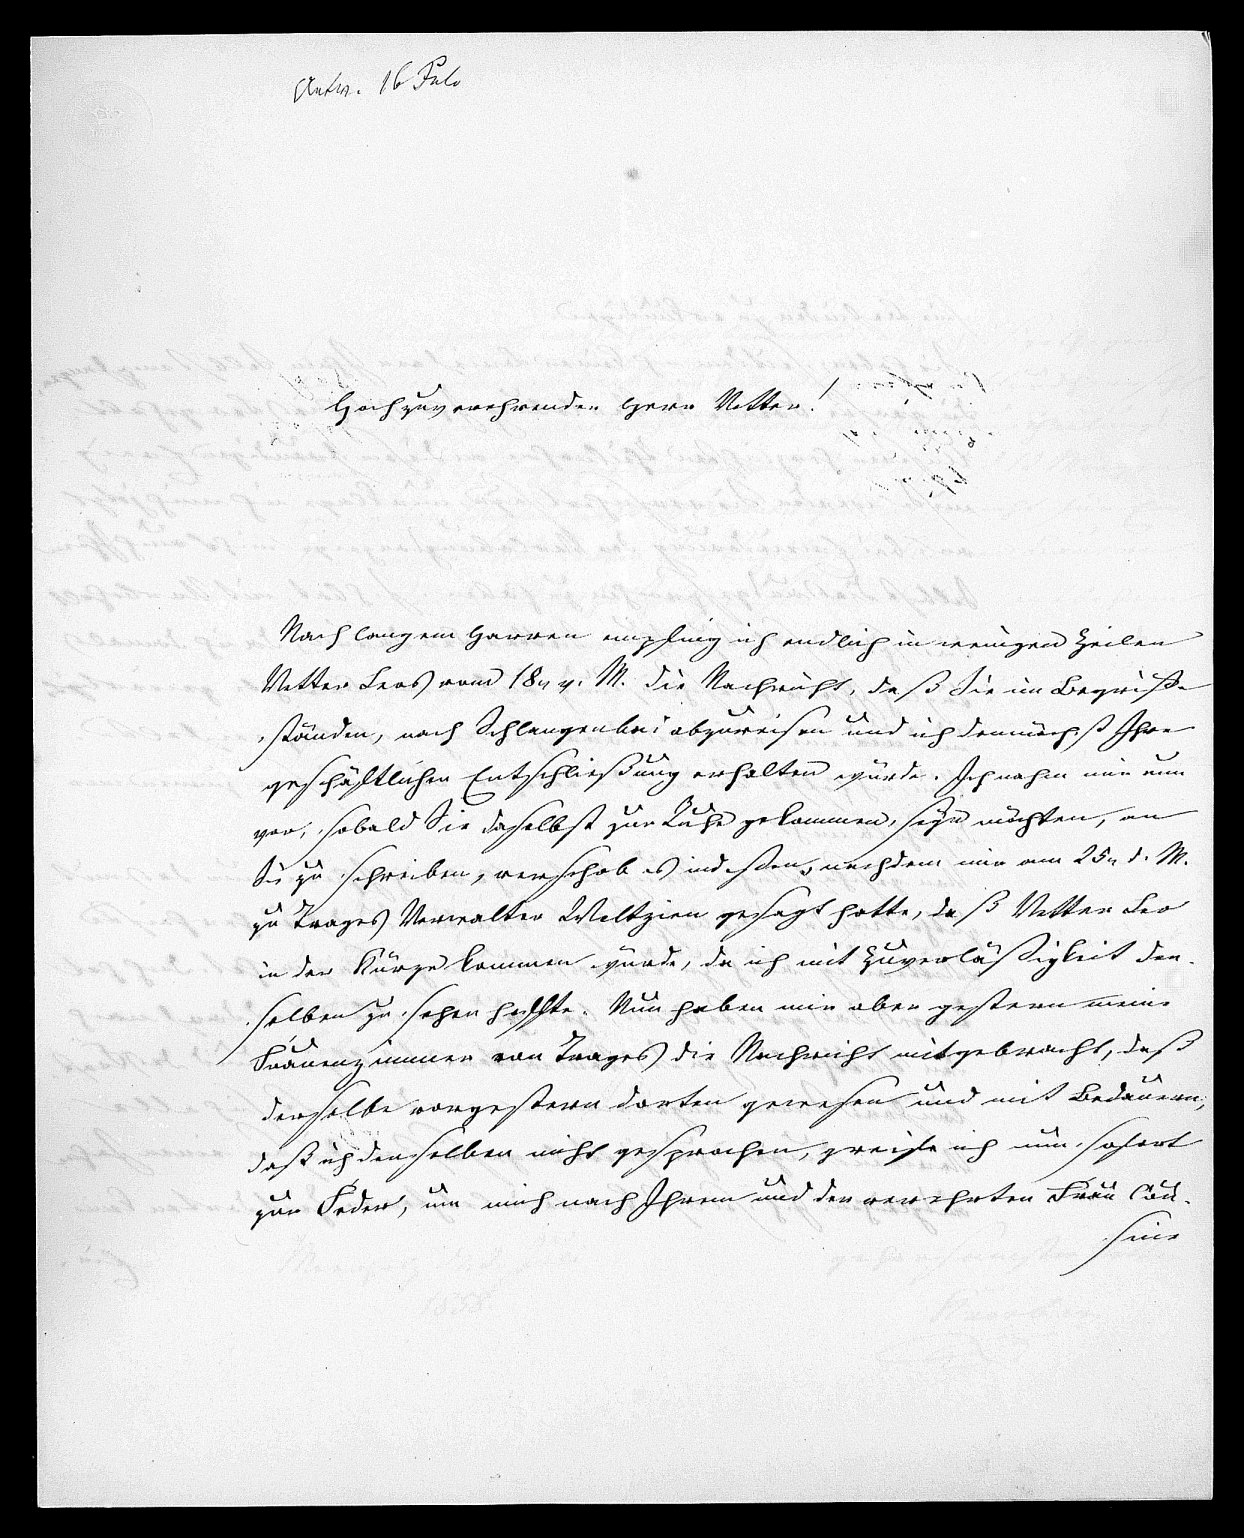 Antw. 16 Jul.
Hochzuverehrender Herr Vetter!
Nach langem Harren empfing ich endlich in wenigen Zeilen
Vetter Leos vom 18n v. M. die Nachricht, daß Sie im Begriffe
ständen, nach Schlangenbad abzureisen und ich demnächst Ihre
geschäftlichen Entschließung erhalten würde. Ich nahm mir nun
vor, sobald Sie daselbst zur Ruhe gekommen seyn möchten, an
Sie zu schreiben, verschob es indessen, nachdem mir am 25n d. M.
zu Trages Verwalter Weltzien gesagt hatte, daß Vetter Leo
in der Kürze kommen würde, da ich mit Zuverläßigkeit den-
selben zu sehen hoffte. Nun haben mir aber gestern meine
Frauenzimmer von Trages die Nachricht mitgebracht, daß
derselbe vorgestern dorten gewesen und mit Bedauern,
daß ich denselben nicht gesprochen, greife ich nun sofort
zur Feder, um mich nach Ihrem und der verehrten Frau Cou-
sine